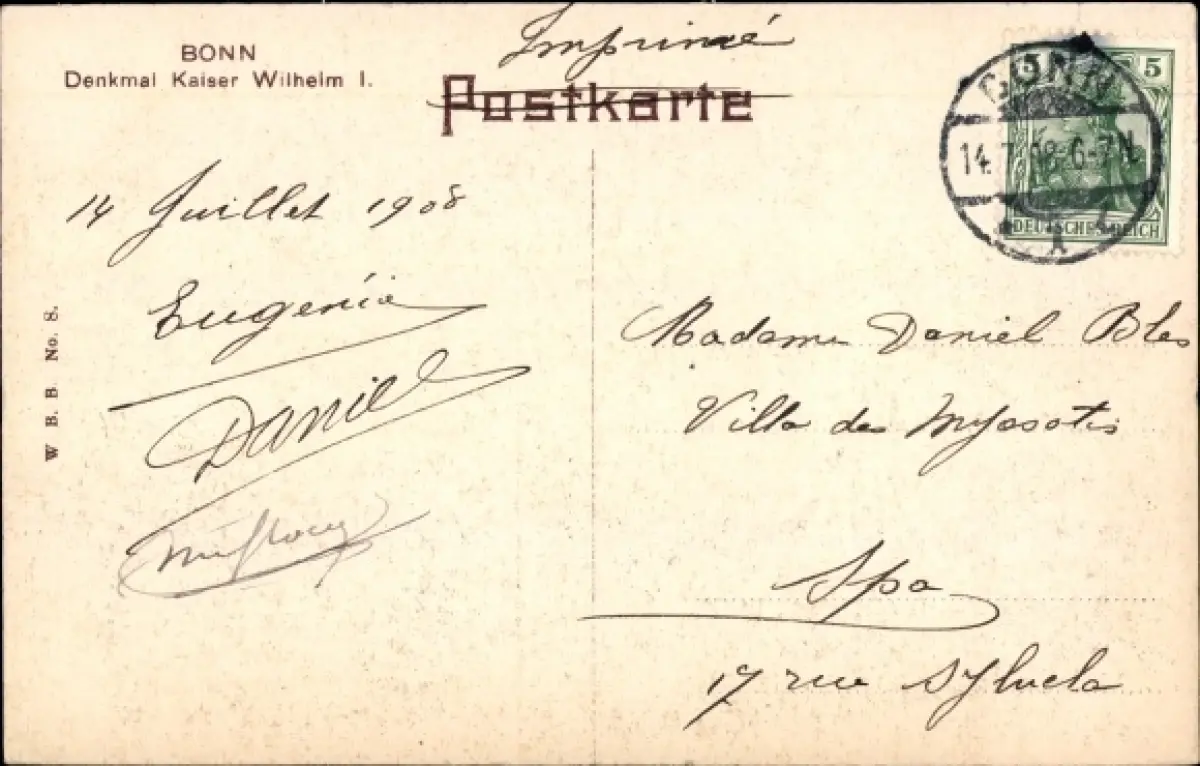 BONN
Denkmal Kaiser Wilhelm I.
Imprimé
Postkarte
5 5
BONN
14.7.08 6-7N
DEUTSCHES REICH
14 Juillet 1908
Eugénie
Daniel
W. B. B. No. 8.
Madame Daniel Bles
Villa des Myosotis
Spa
17 rue Sylvela